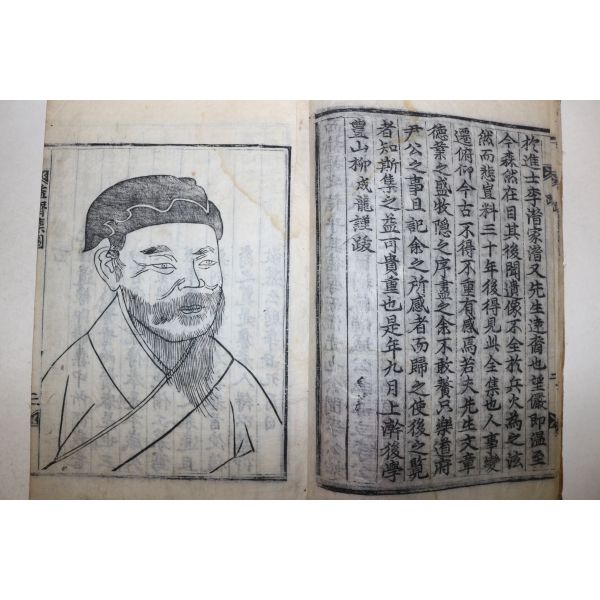 於進士李潜家潜又先生遠裔也望儼即溫至
今森然在目其後聞遺像不全於兵火為之法
然而悲豈料三十年後得見此全集也人事變
遷俯仰今古不得不重有感焉若夫先生文章
德業之盛牧隐之序盡之余不敢贅只樂道府
尹公之事且記余之所感者而歸之使後之覽
者知斯集之益可貴重也是年九月上澣後學
豐山柳成龍謹跋